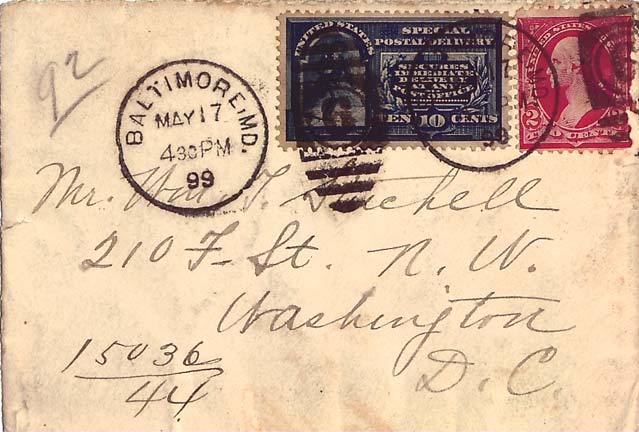 92
BALTIMORE, MD.
MAY 17
4 30 PM
99
UNITED STATES
SPECIAL
POSTAL DELIVERY
SECURES
IMMEDIATE
DELIVERY
AT ANY
POST OFFICE
TEN 10 CENTS
99
UNITED STATES
2
TWO CENTS
Mr. Wm. T.
210 F St. N. W.
Washington
D. C.
15036
44